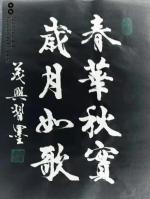 春華秋實
歲月如歌
茂興習墨